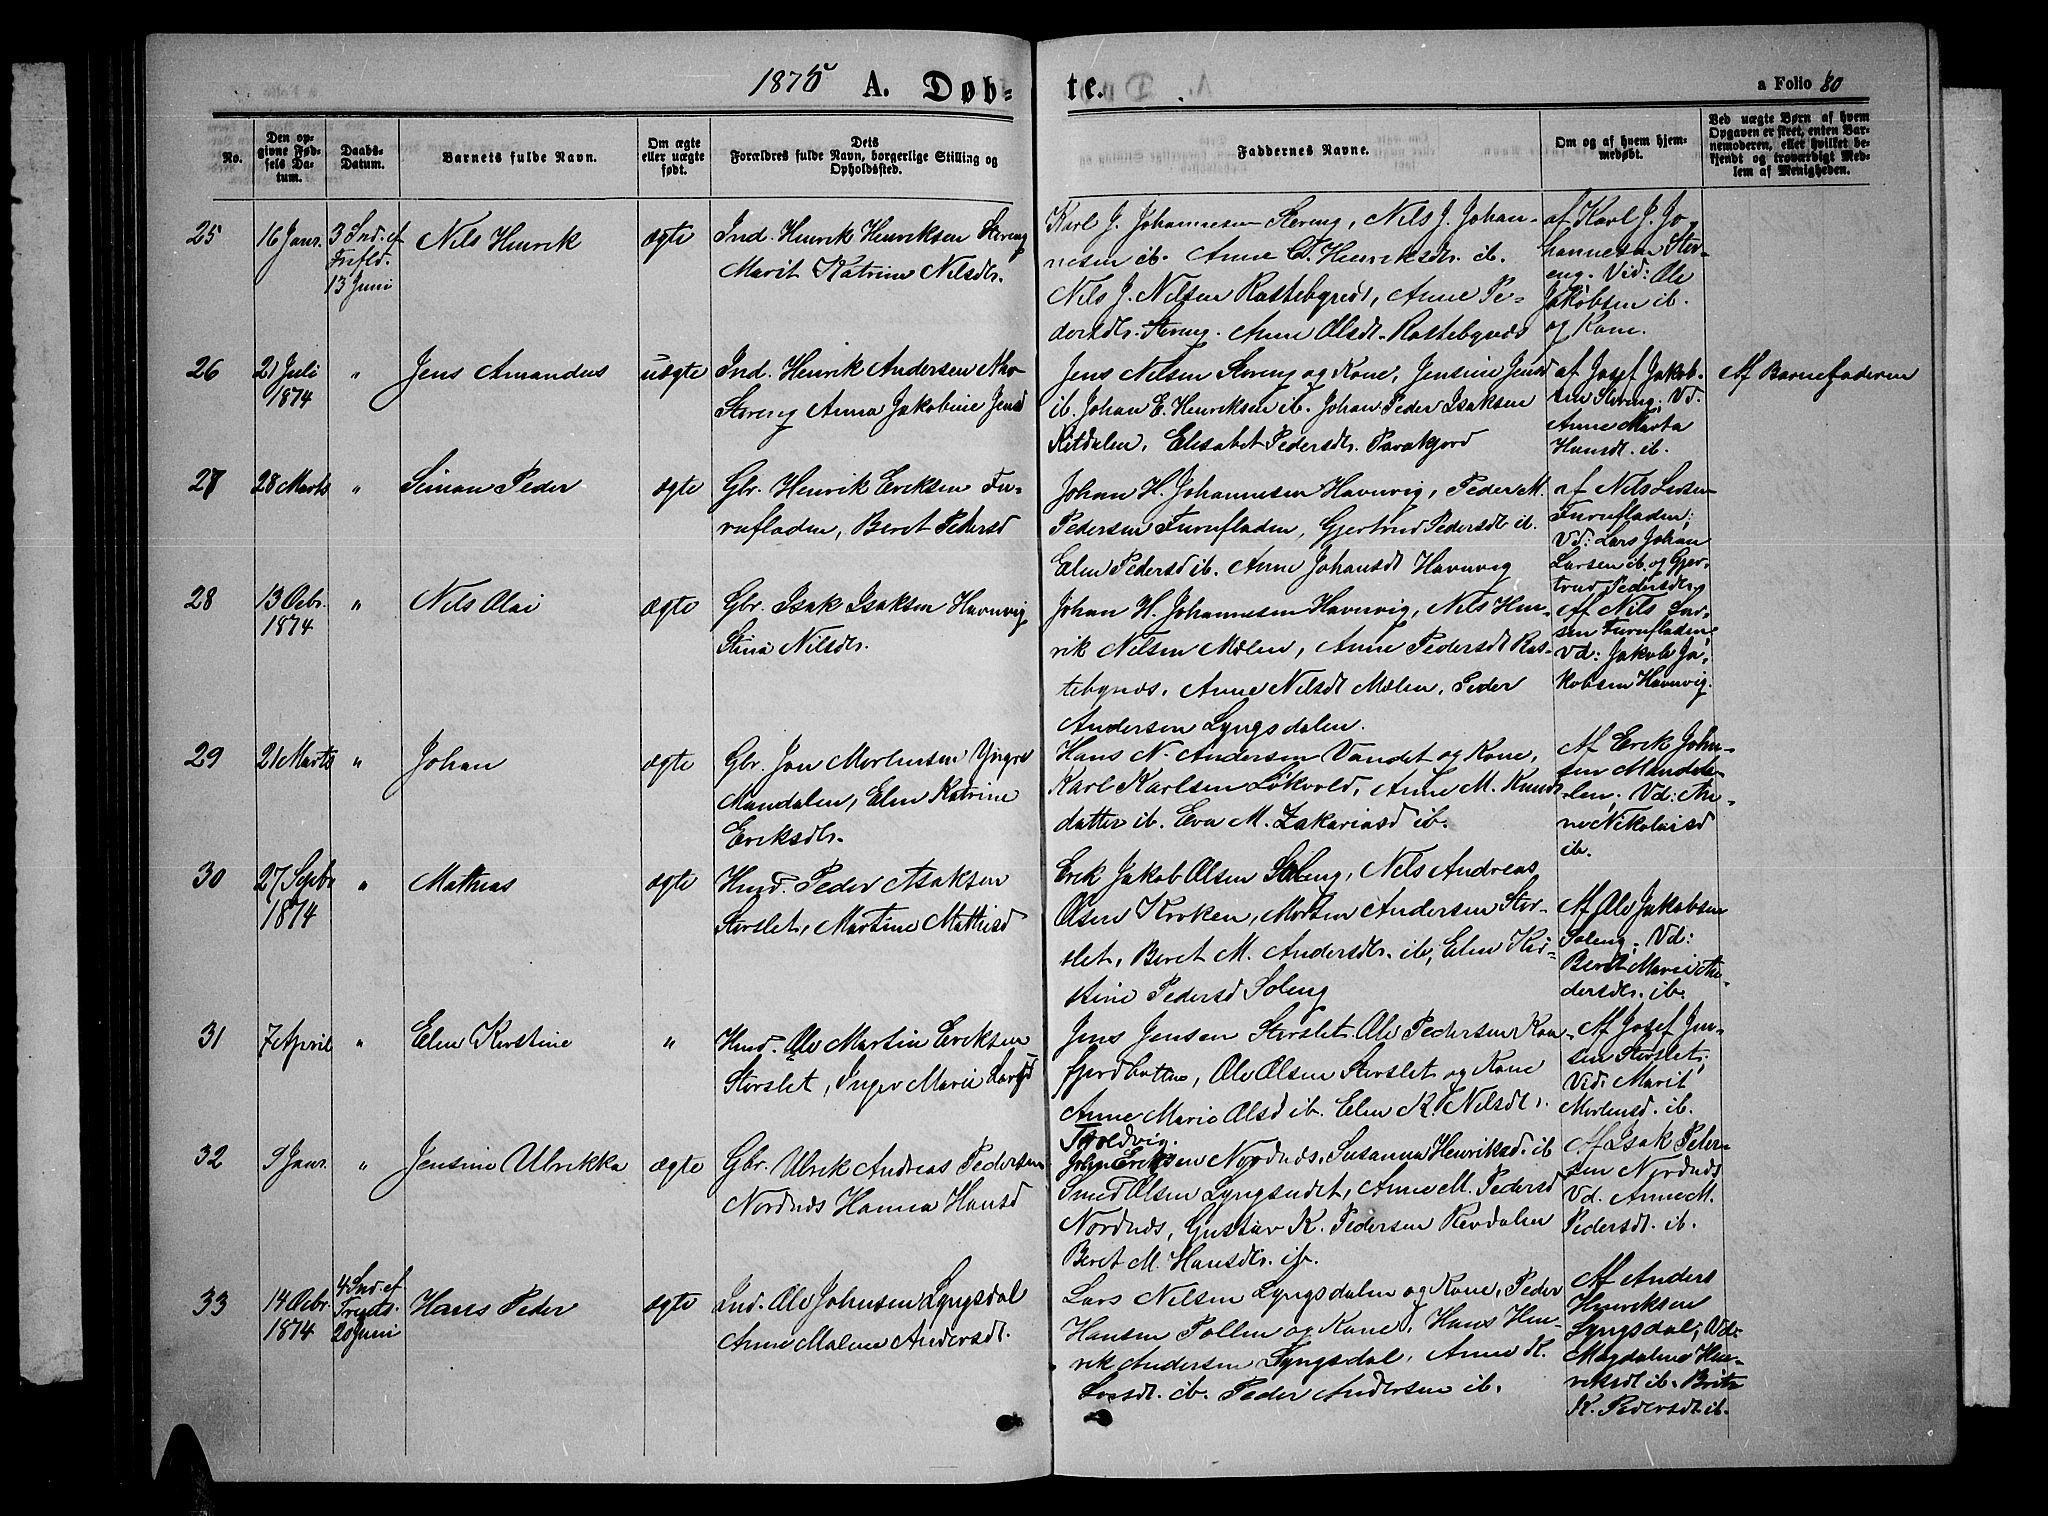 1875 A. Døb-
te.
a Folio 80
No.
Den op-
givne Fød-
sels Da-
tum.
Daabs-
Datum.
Barnets fulde Navn.
Om ægte
eller uægte
født.
Dets
Forældres fulde Navn, borgerlige Stilling og
Opholdssted.
Faddernes Navne.
Om og af hvem hjem-
medøbt.
Ved uægte Børn af hvem
Opgaven er skeet, enten Bar-
nemoderen, eller hvilket be-
kjendt og troværdigt Med-
lem af Menigheden.
25
16 Janr.
3 Snd. ef
Trefld.
13 Juni
Nils Henrik
ægte
Ind. Henrik Henriksen Stereng
Marit Katrine Nilsdtr.
Karl J. Johannesen Stereng, Nils J. Johan-
nesen ib. Anne C. Henriksdtr. ib.
Nils J. Nilsen Rastebynes, Anne Pe-
dersdtr. Stereng. Anne Olsdt. Rastebynes
af Karl J. Jo-
hannesen Ster-
eng. Vid: Ole
Jakobsen ib.
og Kone.
26
21 Juli
1874
"
Jens Amandus
uægte
Ind. Henrik Andersen
Stereng Anna Jakobine Jensd
Jens Nilsen Stereng og Kone, Jensine Jensd
ib. Johan E. Henriksen ib. Johan Peder Isaksen
Kitdalen, Elisabet Pedersdtr. Parakjord
af Josef Jakob-
sen Stereng; Vd.
Anne Marta
Hansdt. ib.
Af Barnefaderen
27
28 Marts
"
Simon Peder
ægte
Gbr. Henrik Eriksen Fu-
rufladen, Beret Pedersd
Johan H. Johannesen Havnvig, Peder M.
Pedersen Furufladen, Gjertrud Pedersdt ib.
Elen Pedersd ib. Anne Johansdt Havnvig
af Nils Larsen
Furufladen;
Vd: Lars Johan
Larsen ib. og Gjer-
trud Pedersdtr.
28
13 Octbr.
1874
"
Nils Olai
ægte
Gbr. Isak Isaksen Havnvig
Stina Nilsdtr.
Johan H. Johannesen Havnvig, Nils Hen-
rik Nilsen Mælen, Anne Pedersdt Ras-
tebynes, Anne Nilsdt Mælen, Peder
Andersen Lyngsdalen.
af Nils Lar-
sen Furufladen,
Vd: Jakob Ja-
kobsen Havnvig.
29
21 Marts
"
Johan
ægte
Gbr. Jon Mortensen Yngre
Mandalen, Elen Katrine
Eriksdtr.
Hans N. Andersen Vandet og Kone,
Karl Karlsen Løkvold, Anne M. Knuds
datter ib. Eva M. Zakariasd ib.
Af Erik John-
sen Mandda-
len; Vd: An-
ne Nikolaisd
ib.
30
27 Sepbr
1874
"
Mathias
ægte
Hmd. Peder Isaksen
Storslet, Martine Mathisd
Erik Jakob Olsen Soleng, Nils Andreas
Olsen Kroken, Morten Andersen Stor-
slet, Beret M. Andersdtr. ib, Elen Kir-
stine Pedersd Soleng
Af Ole Jakobsen
Soleng; Vd:
Beret Marie An-
dersdtr. ib.
31
7 April
"
Elen Kirstine
"
Hmd. Ole Martin Eriksen
Storslet, Inger Marie Larsd
Jens Jensen Storslet. Ole Pedersen Kaa-
fjordbotten, Ole Olsen Storslet og Kone
Anne Marie Olsd ib. Elen K. Nilsdtr.
Tyveldvig.
Af Josef Jen-
sen Storslet;
Vid: Marit
Mortensd. ib.
32
9 Janr.
"
Jensine Ulrikka
ægte
Gbr. Ulrik Andreas Pedersen
Nordnes Hanna Hansd
John Eriksen Nordnes, Susanna Henriksd. ib
Smed Olsen Lyngseidet, Anne M. Pedersd
Nordnes, Gustav K. Pedersen Revdalen
Beret M. Hansdtr. ib.
Af Isak Peter-
sen Nordnes
Vd. Anne M.
Pedersdt. ib.
33
14 Octbr.
1874
4 Snd. ef
Trefds.
20 Juni
Hans Peder
ægte
Ind. Ole Johnsen Lyngsdal
Anne Malene Andersdt.
Lars Nilsen Lyngsdalen og Kone, Peder
Hansen Pollen og Kone, Hans Hen-
rik Andersen Lyngsdal, Anne K.
Larsdt. ib. Peder Andersen ib.
Af Anders
Henriksen
Lyngsdal; Vd:
Magdalene Hen-
riksdt ib. Brita
K. Pedersdt. ib.